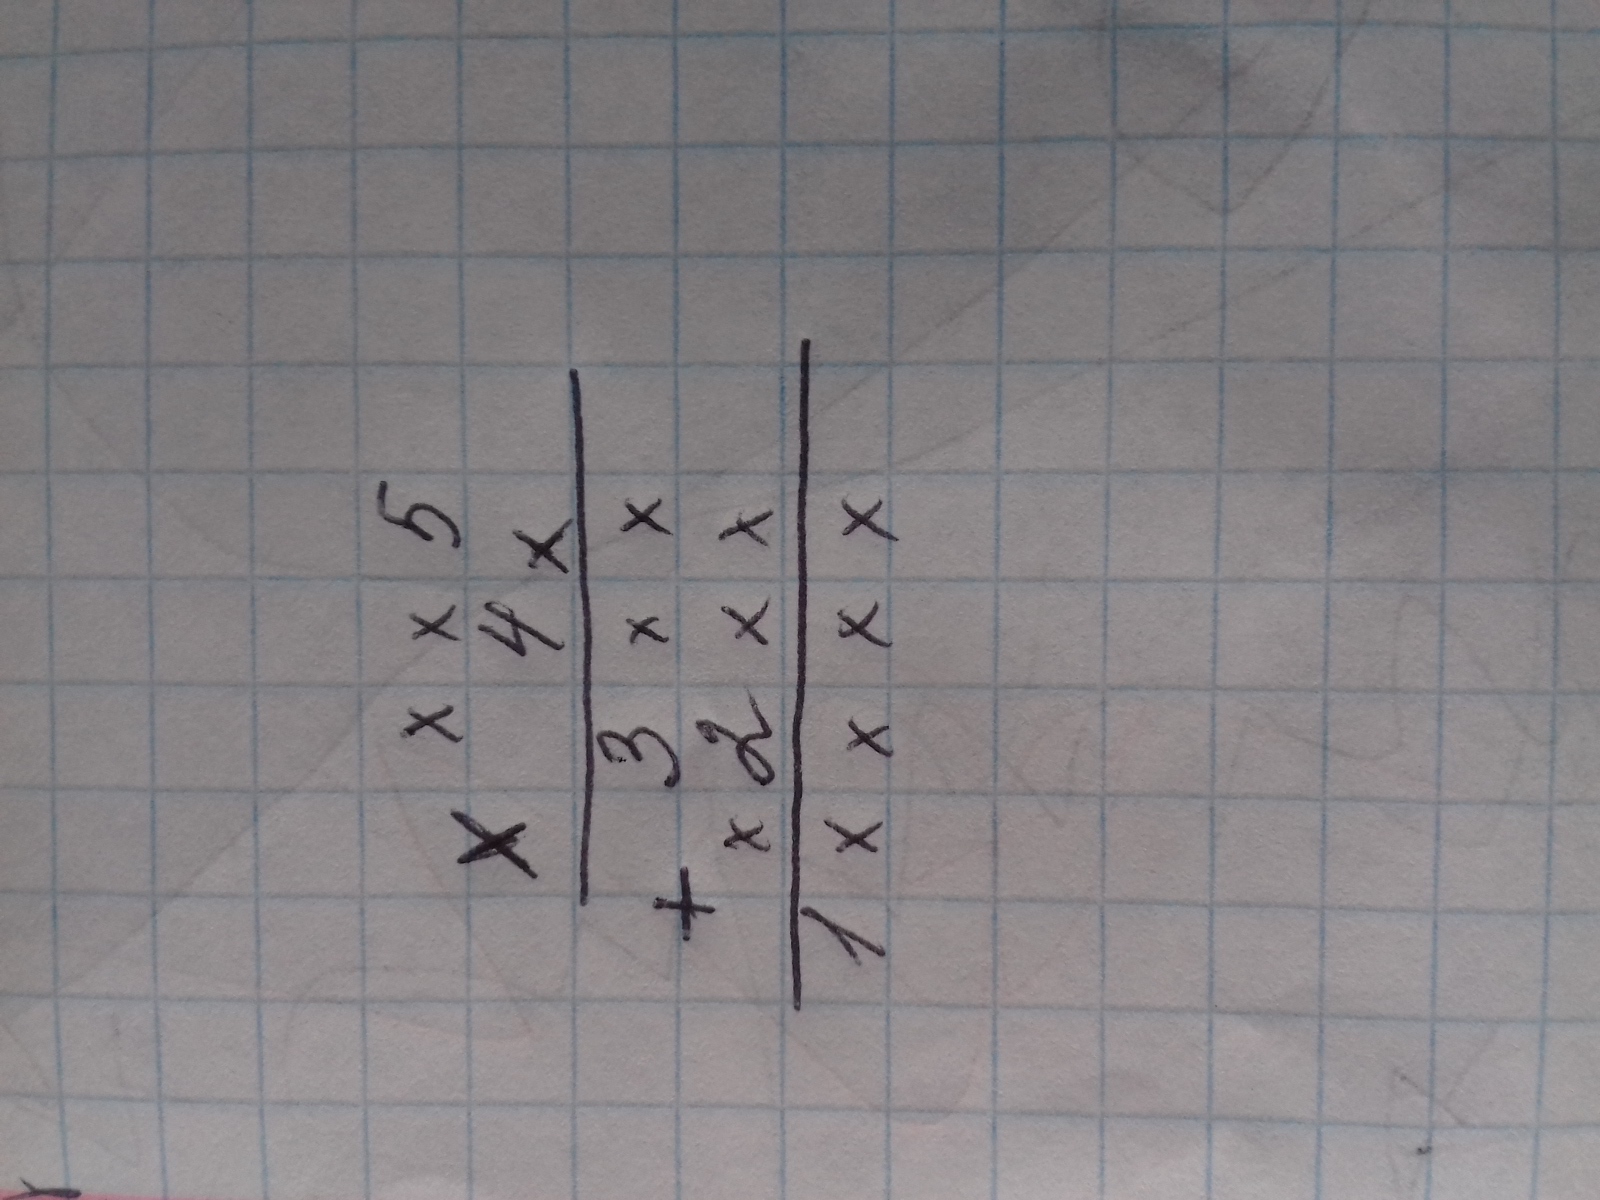 x x 5
x 4 x
3 x x
+
x 2 x x
1 x x x x